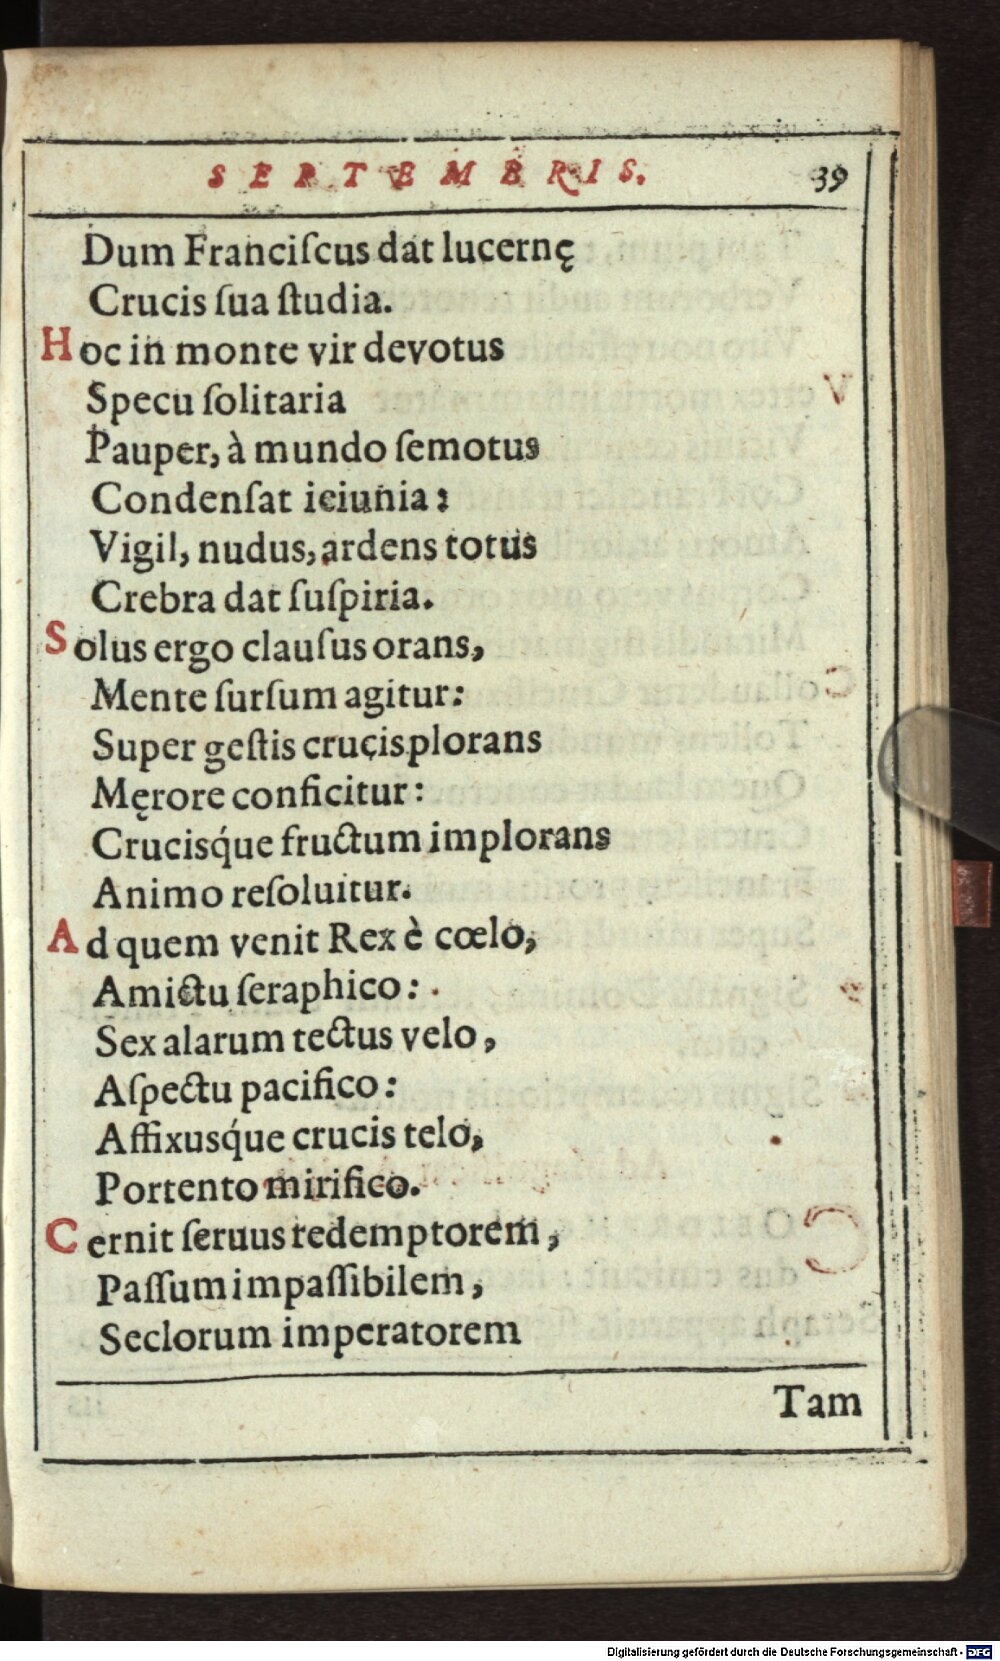 SEPTEMBRIS. 39
Dum Franciſcus dat lucernę
Crucis ſua ſtudia.
Hoc in monte vir devotus
Specu ſolitaria
Pauper, à mundo ſemotus
Condenſat ieiunia:
Vigil, nudus, ardens totus
Crebra dat ſuſpiria.
Solus ergo clauſus orans,
Mente ſurſum agitur:
Super geſtis crucis plorans
Męrore conficitur:
Crucisq́ue fructum implorans
Animo reſoluitur.
Ad quem venit Rex è cœlo,
Amictu ſeraphico:
Sex alarum tectus velo,
Aſpectu pacifico:
Affixusq́ue crucis telo,
Portento mirifico.
Cernit ſeruus redemptorem,
Paſſum impaſſibilem,
Seclorum imperatorem
Tam
Digitalisierung gefördert durch die Deutsche Forschungsgemeinschaft - DFG